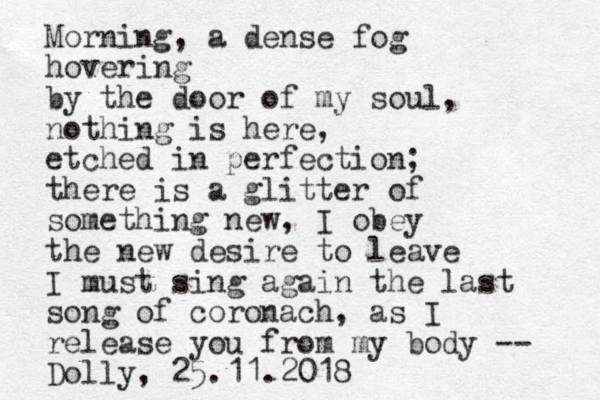 Morning, a dense fog
hovering
by the door of my soul,
nothing is here,
etched in perfection;
there is a glitter of
something new, I obey
the new desire to leave
I must sing again the last
song of coronach, as I
release you from my body --
Dolly, 25.11.2018